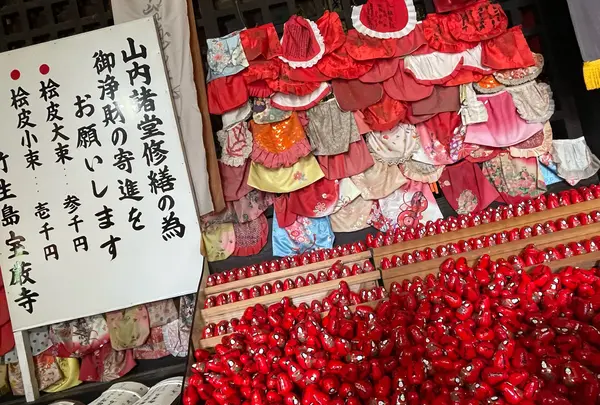 山内諸堂修繕の為
御浄財の寄進を
お願いします
桧皮大束…参千円
桧皮小束…壱千円
竹生島宝厳寺